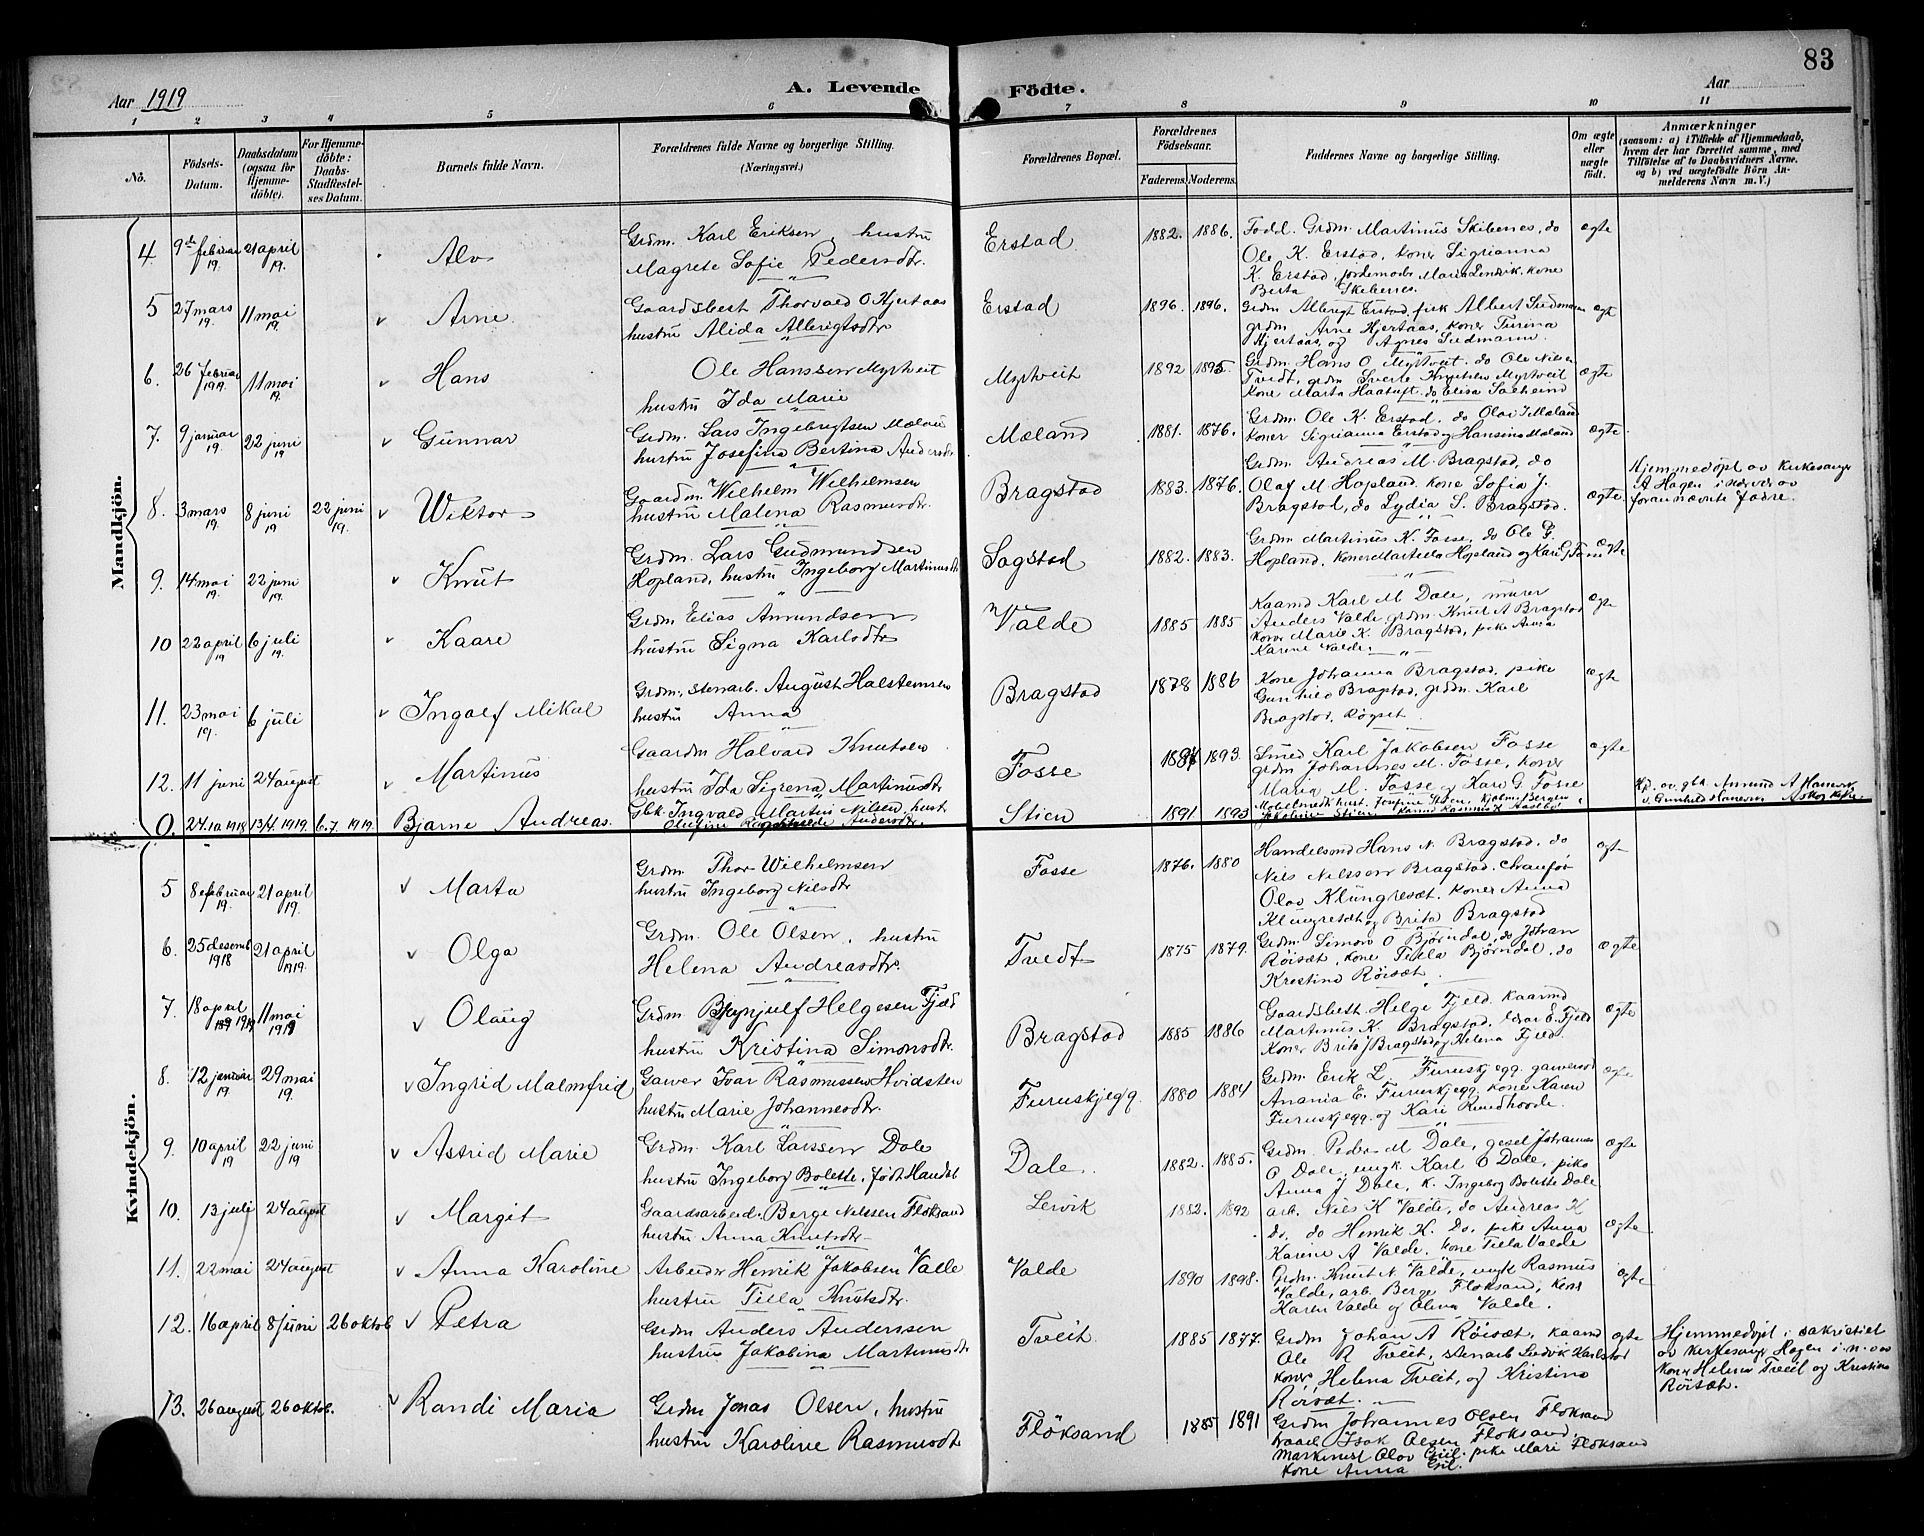 83
Aar 1919
A. Levende Födte.
Aar
1 2 3 4 5 6 7 8 9 10 11
No.
Födsels-Datum.
Daabsdatum (ogsaa for Hjemme-döbte).
For Hjemme-döbte: Daabs-Stadfæstel-ses Datum.
Barnets fulde Navn.
Forældrenes fulde Navne og borgerlige Stilling. (Næringsvei.)
Forældrenes Bopæl.
Forældrenes Födselsaar.
Faderens. Moderens.
Faddernes Navne og borgerlige Stilling.
Om ægte eller uægte födt.
Anmærkninger
(saasom: a) i Tilfælde af Hjemmedaab, hvem der har forrettet samme, med Tilföielse af to Daabsvidners Navne, og b) ved uægtefödte Börn An-melderens Navn m. V.)
Mandkjön.
4 9de februar 19. 21 april 19. Alv
Grdm. Karl Eriksen, hustru
Magrete Sofie Pedersdtr.
Erstad 1882. 1886.
Fadd. Grdm. Martinus Skibenes, do
Ole K. Erstad, koner Sigrianna
K. Erstad, jordemoder Maria Lenvik, kone
Berta Skibenes.
ægte
5 27 mars 19. 11 mai 19. v Arne.
Gaardsbest Thorvald O Hjertaas
hustru Alida Albrigtsdtr
Erstad 1896. 1896.
Grdm Albrigt Erstad, fisk Albert Sudmann
grdm Arne Hjertaas, koner Turina
Hjertaas, og Agnes Sudmann.
ægte
6. 26 februar 1919. 11 mai 19. v Hans
Ole Hanssen Myrtveit
hustru Ida Marie
Myrtveit 1892 1895.
Grdm. Hans O Myrtveit, do Ole Nilsen
Tvedt, grdm Sverle Knutsen Myrtveit
Kone Marta Haatuft, do Elisa Solheim
ægte
7. 9 januar 19. 22 juni 19 v Gunnar
Grdm. Lars Ingebrigtsen Mæland
hustru Josefina Bertina Andersdtr
Mæland 1881. 1876.
Grdm. Ole K. Erstad, do Olav I Mæland
koner Sigrianna Erstad og Hansina Mæland
ægte.
8. 3 mars 19. 8 juni 19 22 juni 19. v Wiktor
Gaardm. Wilhelm Wilhelmsen
hustru Malena Rasmusdtr.
Bragstad 1883. 1876.
Grdm. Andreas M. Bragstad, do
Olaf M Hopland. kone Sofia J.
Bragstad, do Lydia S. Bragstad.
ægte.
Hjemmedöpt av kirkesanger
A Hagen i nærvær av
forannævnte fadre.
9. 14 mai 19. 22 juni 19. v Knut
Grdm. Lars Gudmundsen
Hopland, hustru Ingeborg Martinusdtr
Sagstad 1882. 1883.
Grdm Martinus K. Fosse, do Ole G.
Hopland, koner Martilla Hopland og Kari G Fosse
ægte
10 22 april 19 6 juli 19. v Kaare
Grdm Elias Amundsen
hustru Signa Karlsdtr
Valde 1885 1885
Kaarmd Karl M Dale, murer
Anders Valde, grdm. Knut A Bragstad
kone Marie K. Bragstad, pike Anna
Karine Valde.
ægte
11. 23 mai 19. 6 juli v Ingolf Mikal
Grdm, stenarb. August Halstensen
hustru Anna
Bragstad 1878 1886
Kone Johanna Bragstad, pike
Gunhild Bragstad, grdm. Karl
Bragstad, Röyset.
ægte
12. 11 juni 24 august v Martinus
Gaardm Halvard Knutsen
hustru Ida Sigrena Martinusdtr
Fosse 1887 1893.
Smed Karl Jakobsen Fosse
grdm Johannes M. Fosse, koner
Maria M. Fosse og Kari G. Fosse
ægte
0. 24.10 1918 13/4 1919. 6.7 1919 Bjarne Andreas.
Gbk. Ingvald Martin Nilsen, hust.
Olufine Andersdtr.
Stien 1891 1893
Hp. av gbr. Amund A Hanevik
v. Gunhild Hanevik Askøy kirke.
Kvindekjön.
5 8 februar 19. 21 april 19. v Marta
Grdm. Thor Wilhelmsen
hustru Ingeborg Nilsdtr
Fosse 1876. 1880
Handelsmd Hans N. Bragstad, do
Nils Nilssen Bragstad. chaufför
Olav Klungresæt, koner Anna
Klungresæt og Brita Bragstad
ægte
6. 25 desemb 1918 21 april 1919. v Olga
Grdm. Ole Olsen, hustru
Helena Andreasdtr.
Tvedt 1875 1879.
Grdm. Simon O Björndal, do Johan
Röisæt, kone Tilla Björndal, do
Kristina Röisæt.
ægte
7. 18 april 1919 11 mai 1919 v Olaug
Grdm Brynjulf Helgesen Fjeld
hustru Kristina Simonsdtr.
Bragstad 1885 1886
Gaardsbesth Helge Fjeld, kaarmd
Martinus K. Bragstad, Lars E. Fjeld
Koner Brita J Bragstad og Helena Fjeld.
ægte
8. 12 januar 19. 29 mai 19. v Ingrid Malmfrid
Garver Ivar Rasmussen Hvidsten
hustru Marie Johannesdtr.
Furuskjegg. 1880 1884
Grdm. Erik L. Furuskjegg, garversv
Anania E. Furuskjegg, kone Karen
Furuskjegg. og Kari Rundhovde.
ægte
9. 10 april 19 22 juni 19 v Astrid Marie
Grdm. Karl Larssen Dale
hustru Ingeborg Bolette, födt Mandal
Dale. 1882. 1885.
Grdm. Peder M Dale, gesel Johannes
O Dale, ungk. Karl O Dale, pike
Anna J Dale, k. Ingeborg Bolette Dale
ægte
10. 13 juli 24 august v Margit
Gaardsarbeid. Berge Nilssen Floksand
hustru Anna Knutsdtr
Leivik 1882. 1892
arb. Nils K Valde, do Andreas K
do, do Henrik K. do, pike Anna
Karine A Valde, kone Tilla Valde
ægte
11. 22 mai 24 august v Anna Karoline
Arbeider Henrik Jakobsen Valle
hustru Tilla Knutsdtr.
Valde 1890 1898.
Grdm. Knut N. Valde, ungk Rasmus
Valde, arb. Berge Floksand, kone
Karen Valde og Olina Valde.
ægte
12. 16 april 8 juni 26 oktob v Petra
Grdm Anders Anderssen
hustru Jakobina Martinusdtr
Tveit 1885 1877.
Grdm Johan A Röisæt, kaarmd
Ole R Tveit, stenarb Ludvik Karlstad
koner Helena Tveit, og Kristina
Röisæt.
ægte
Hjemmedöpt i sakristiet
av kirkesanger Hagen i n. av
koner Helena Tveit og Kristina
Röisæt.
13. 26 august 26 oktob. v Randi Maria
Grdm Jonas Olsen, hustru
hustru Karoline Rasmusdtr
Flöksand 1885 1891
Grdm Johannes Olsen Floksand
Isak Olsen Floksand,
Olov Eril. pike Mari Floksand
kone Anna Eril.